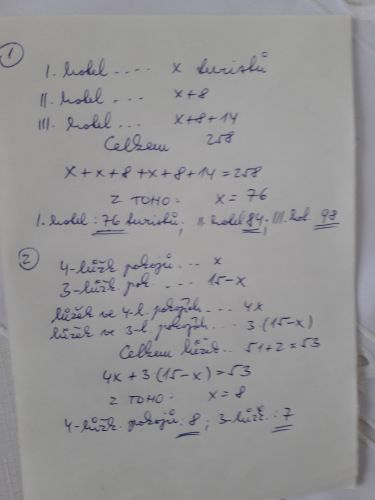 1
I. hotel .... x turistů
II. hotel ... x+8
III. hotel ... x+8+14
Celkem 258
x+x+8+x+8+14=258
z toho: x=76
I. hotel: 76 turistů; II. hotel 84; III. hot. 98
2
4-lůžk. pokojů ... x
3-lůžk. pok. ... 15-x
lůžek ve 4-l. pokojích ... 4x
lůžek ve 3-l. pokojích ... 3(15-x)
Celkem lůžek .. 51+2=53
4x+3(15-x)=53
z toho: x=8
4-lůžk. pokojů: 8; 3-lůžk.: 7